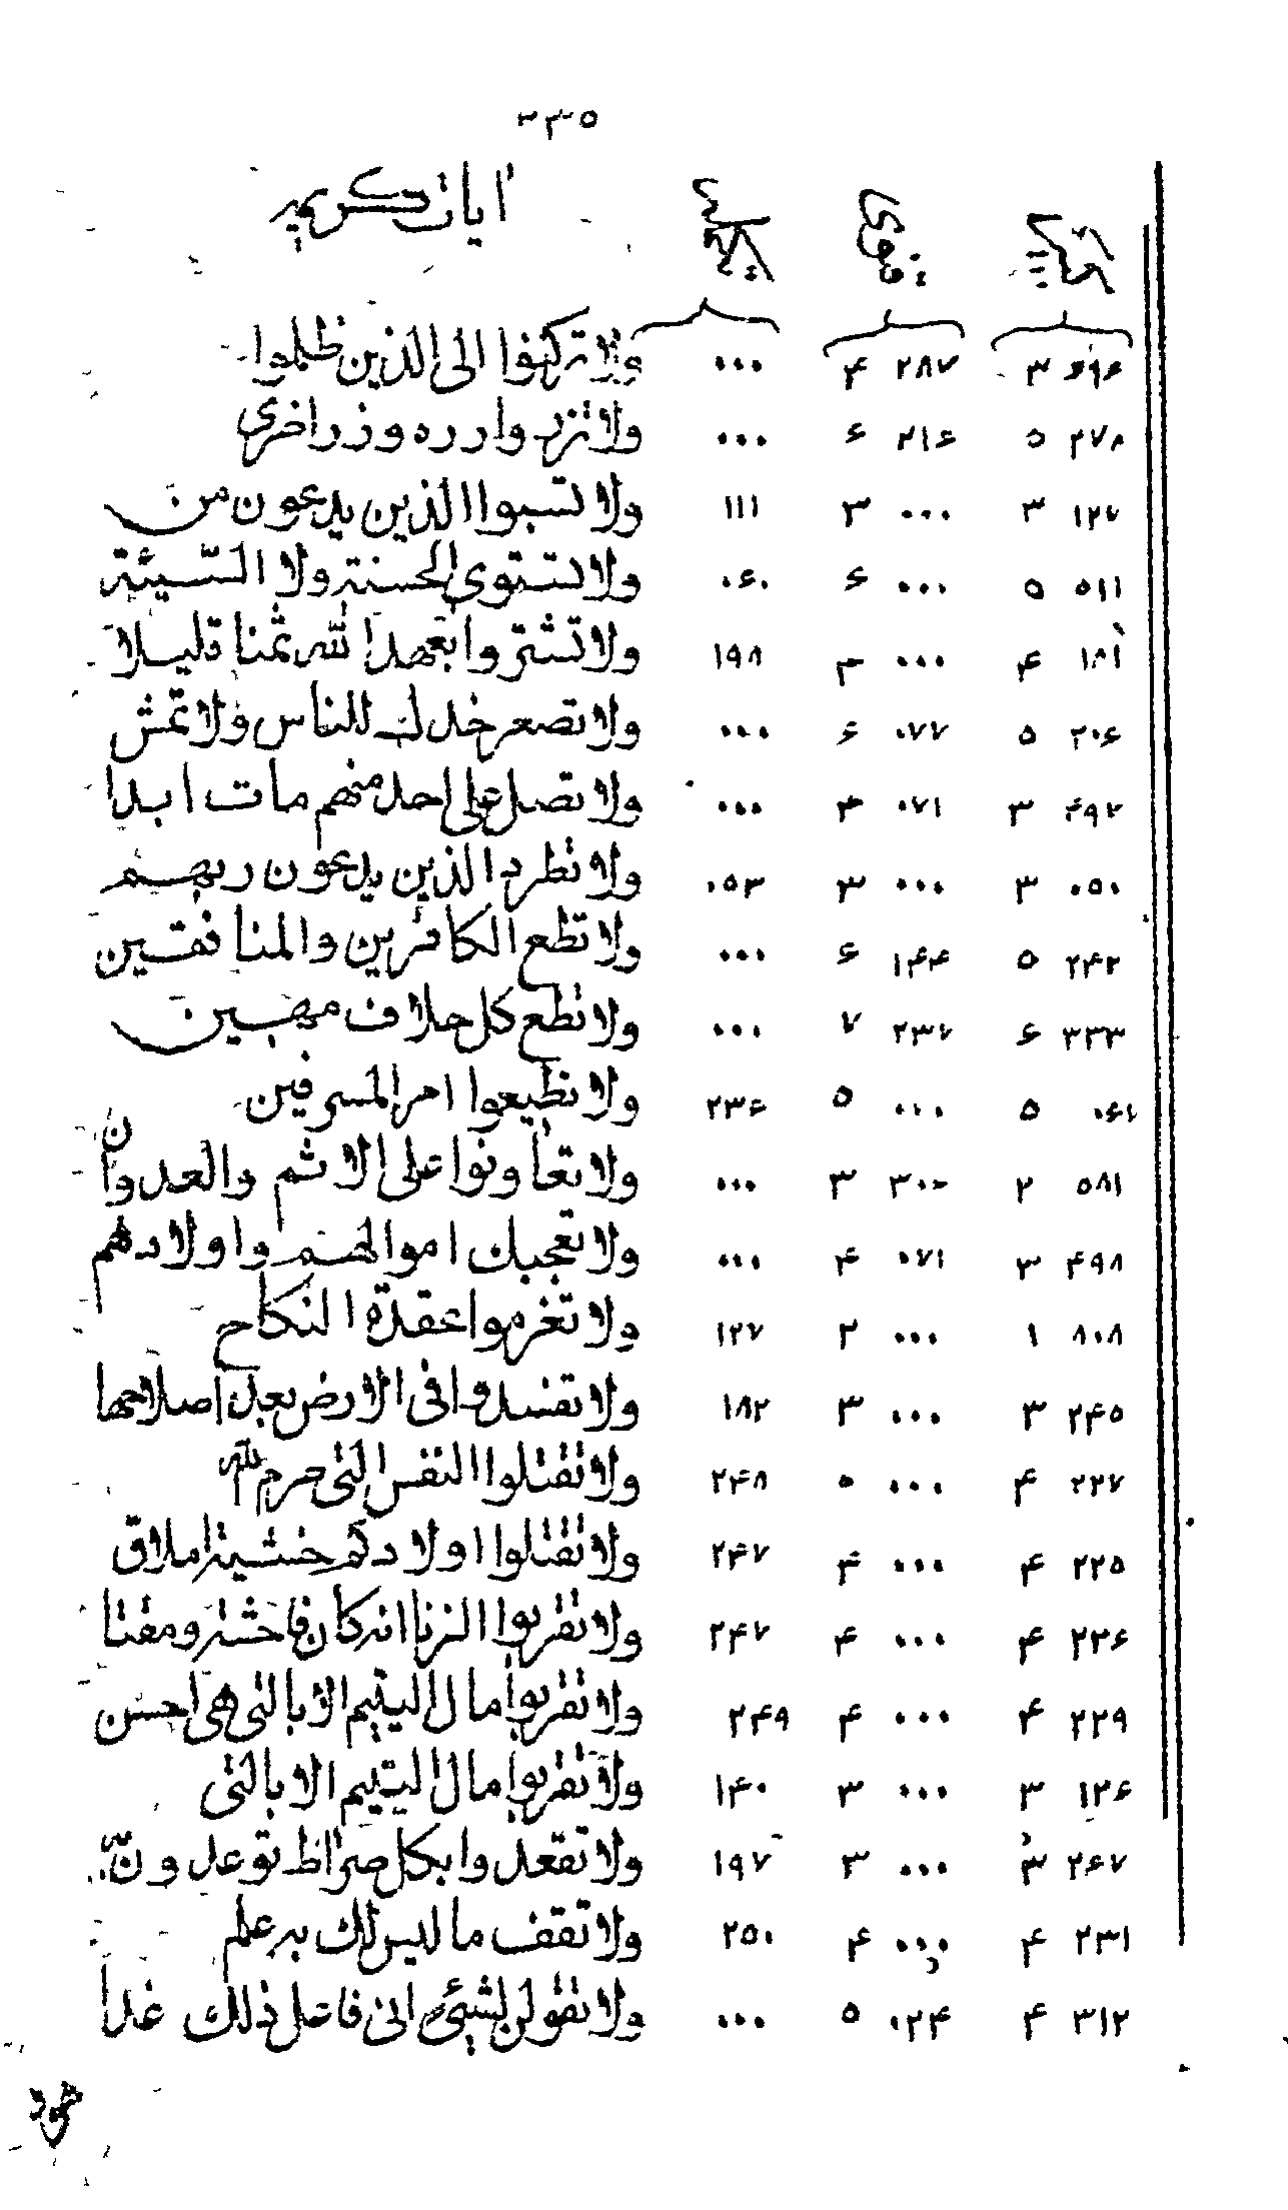 ۳۳۵
آیات کریمه
۶۹۶ ۳ ۲۸۷ ۴ ۰۰۰ ولا ترکنوا الی الذین ظلموا
۲۷۸ ۵ ۲۱۶ ۶ ۰۰۰ ولا تزر وازره وزر اخری
۱۲۷ ۳ ۰۰۰ ۳ ۱۱۱ ولا تسبوا الذین یدعون من
۵۱۱ ۵ ۰۰۰ ۶ ۰۶۰ ولا تستوی الحسنة ولا السّیئة
۱۸۱ ۴ ۰۰۰ ۴ ۱۹۸ ولا تشتروا بعهد الله ثمنا قلیلا
۲۰۶ ۵ ۰۷۷ ۶ ۰۰۰ ولا تصعر خدك للناس ولا تمش
۴۹۲ ۳ ۰۷۱ ۴ ۰۰۰ ولا تصل علی احد منهم مات ابدا
۰۵۰ ۳ ۰۰۰ ۳ ۰۵۳ ولا تطرد الذین یدعون ربهم
۲۴۲ ۵ ۱۴۴ ۶ ۰۰۰ ولا تطع الکافرین والمنافقین
۳۳۳ ۶ ۲۳۷ ۷ ۰۰۰ ولا تطع کل حلاف مهین
۰۶۱ ۵ ۰۰۰ ۵ ۲۳۶ ولا تطیعوا امر المسرفین
۵۸۱ ۲ ۳۰۰ ۳ ۰۰۰ ولا تعاونوا علی الاثم والعدوان
۴۹۸ ۳ ۰۷۱ ۴ ۰۰۰ ولا تعجبك اموالهم واولادهم
۸۰۸ ۱ ۰۰۰ ۲ ۱۲۷ ولا تعزموا عقدة النکاح
۲۴۵ ۳ ۰۰۰ ۳ ۱۸۲ ولا تفسدوا فی الارض بعد اصلاحها
۲۲۷ ۴ ۰۰۰ ۵ ۲۴۸ ولا تقتلوا النفس التی حرم الله
۲۲۵ ۴ ۰۰۰ ۴ ۲۴۷ ولا تقتلوا اولادکم خشیة املاق
۲۲۶ ۴ ۰۰۰ ۴ ۲۴۷ ولا تقربوا الزنا انه کان فاحشة ومقتا
۲۲۹ ۴ ۰۰۰ ۴ ۲۴۹ ولا تقربوا مال الیتیم الا بالتی هی احسن
۱۲۶ ۳ ۰۰۰ ۳ ۱۴۰ ولا تقربوا مال الیتیم الا بالتی
۲۶۷ ۳ ۰۰۰ ۳ ۱۹۷ ولا تقعدوا بکل صراط توعدون
۲۳۱ ۴ ۰۰۰ ۴ ۲۵۰ ولا تقف ما لیس لك به علم
۳۱۲ ۴ ۰۲۴ ۵ ۰۰۰ ولا تقولن لشیئ انی فاعل ذلك غدا